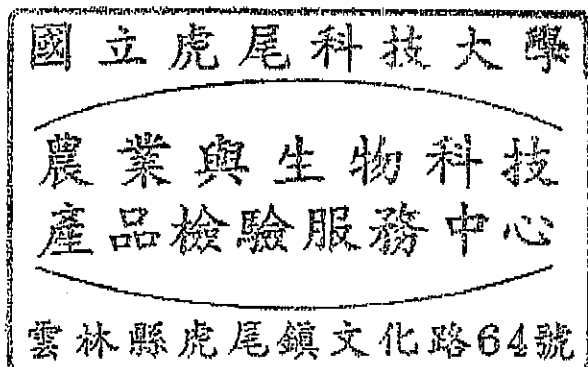 國立虎尾科技大學
農業與生物科技
產品檢驗服務中心
雲林縣虎尾鎮文化路64號